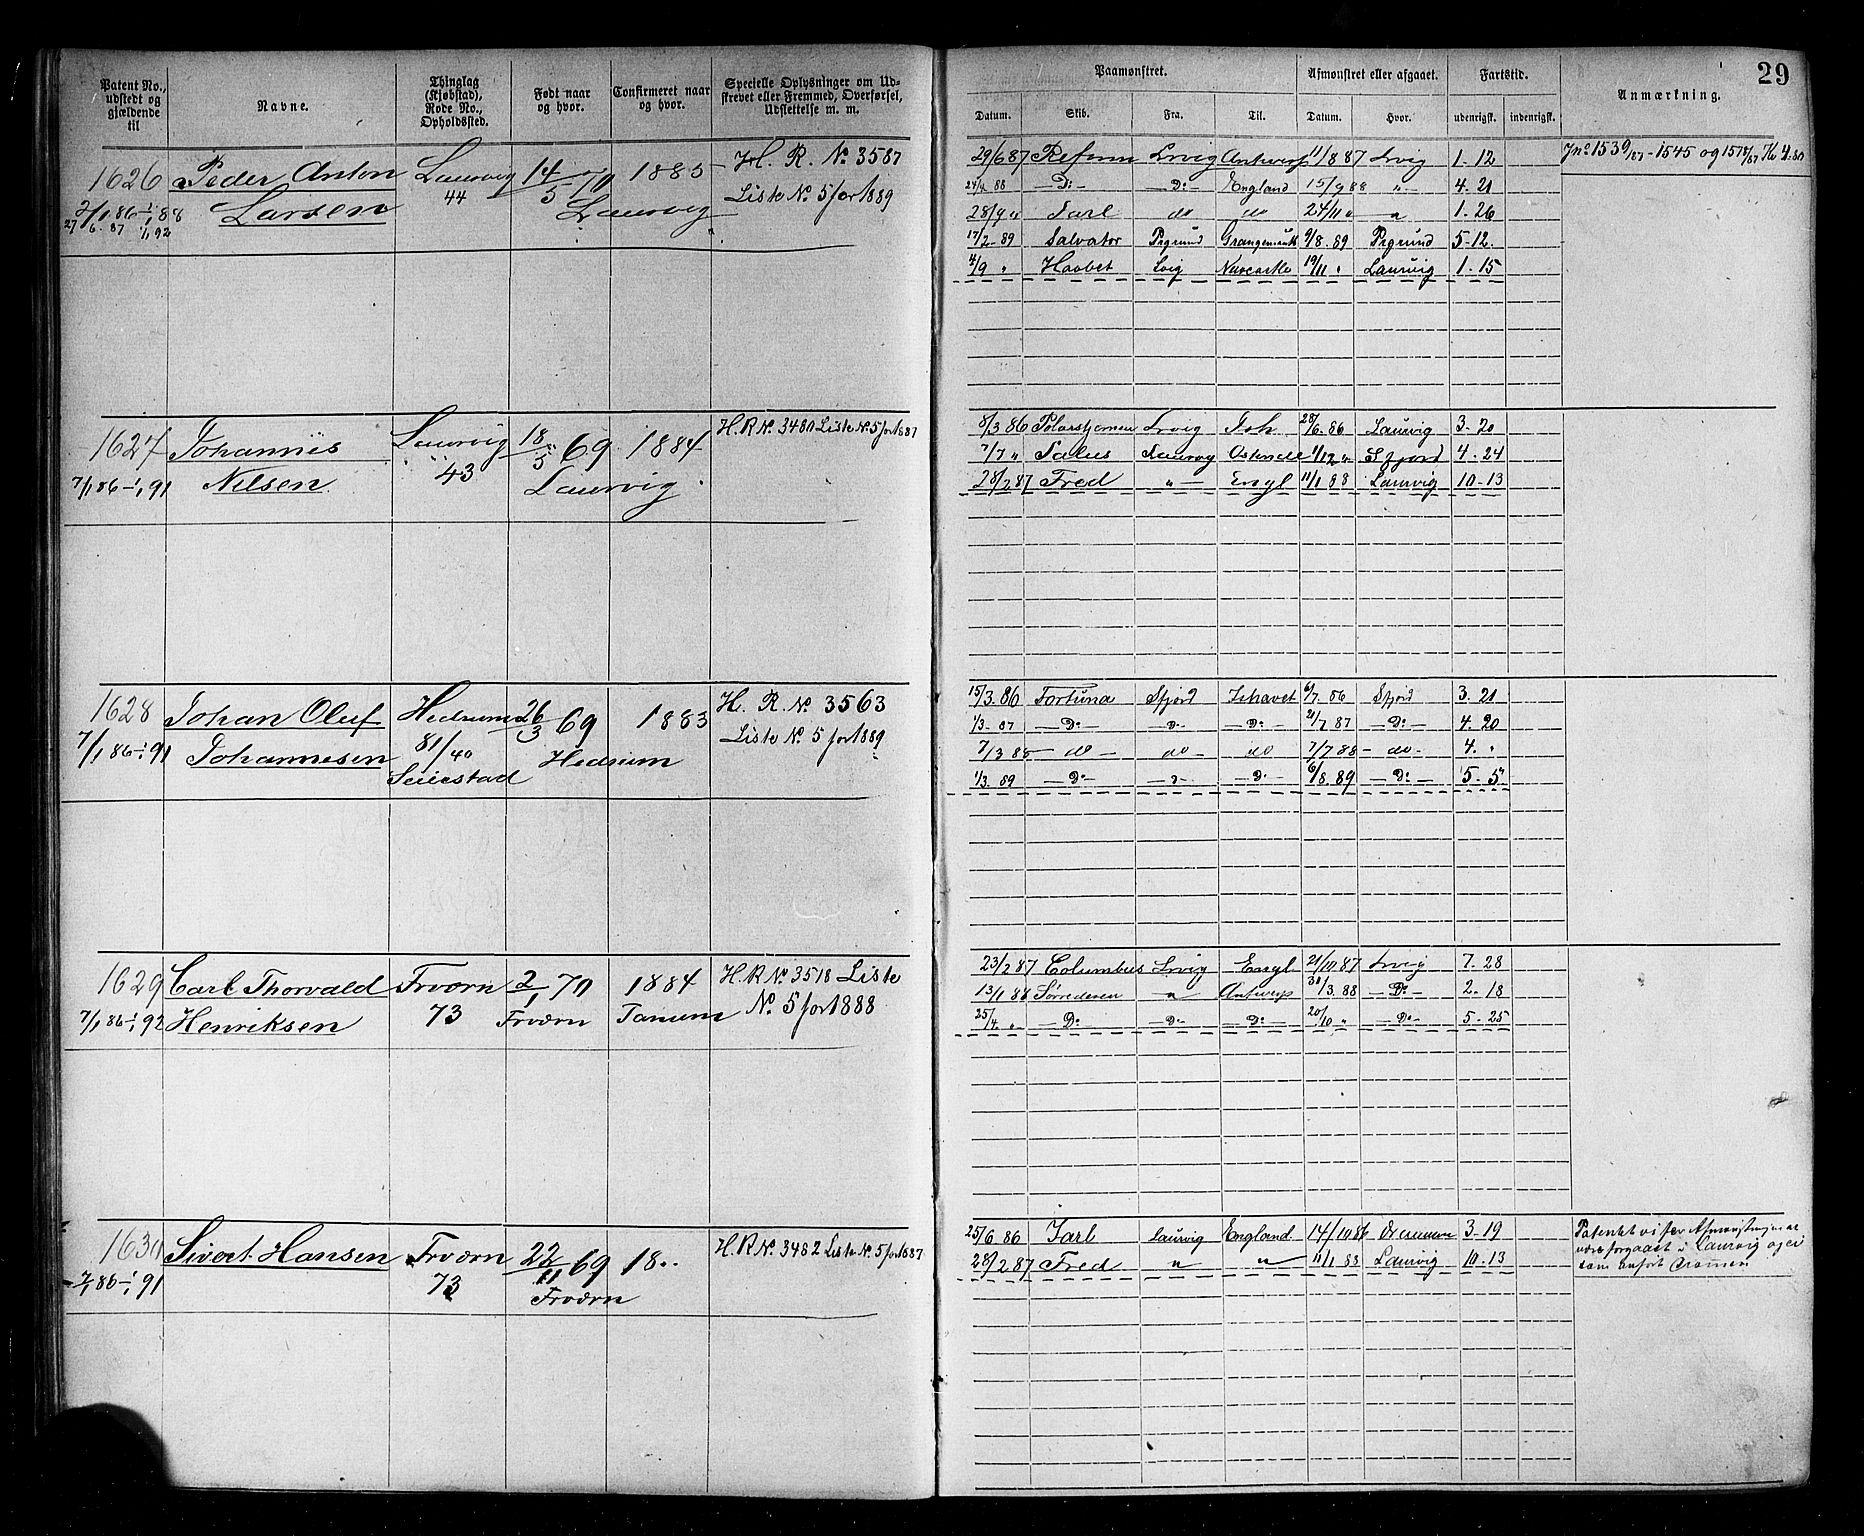 29
Patent No., udstedt og gjældende til
Navne.
Thinglag (Kjøbstad), Rode No., Opholdssted.
Født naar og hvor.
Confirmeret naar og hvor.
Specielle Oplysninger om Udskrevet eller Fremmed, Overførsel, Udslettelse m. m.
Paamønstret.
Afmønstret eller afgaaet.
Fartstid.
Anmærkning.
Datum. Skib. Fra. Til. Datum. Hvor. udenrigsk. indenrigsk.
1626 Peder Anton Laurvig 14/5 70 1885 H. R. No 3587
2/1 86-1/1 88 Larsen 44 Laurvig Liste No. 5 for 1889
27/6. 87 1/1 92
29/6 87 Reform Lrvig Antwerp 11/8 87 Lrvig 1-12
24/4 88 -Do- -Do- England 15/9 88 " 4. 21
28/9 " Jarl do do 24/11 " " 1. 26
17/2-89 Salvator Prgrund Grangemouth 9/8. 89 Prgrund 5-12.
4/9 " Haabet Lvig 19/11 " Laurvig 1. 15
Jno 1539/87-1545 og
1627 Johannes Laurvig 18/5 69 1884 H. R No. 3480 Liste No. 5 for 1887
7/1 86-1/1 91 Nilsen 43 Laurvig
8/3 86 Polarstjernen Lrvig Ish 28/6. 86 Laurvig 3-20
7/7 " Ostende 1/12 " Sfjord 4. 24
28/2 87 Fred " Engl 11/1 88 Laurvig 10-13
1628 Johan Oluf Hedrum 26/3 69 1883 H. R. No 3563
7/1 86-1/1 91 Johannesen 81/40 Hedrum Liste No. 5 for 1889
Seiestad
15/3. 86 Fortuna Sfjord Ishavet 6/7. 86 Sfjord 3. 21
1/3. 87 -Do- -Do- -Do- 21/7 87 -Do- 4. 20
7/3 88 -do- do do 7/7 88 -do- 4. "
1/3. 89 -Do- -Do- -Do- 6/8. 89 -Do- 5-5
1629 Carl Thorvald Frværn 2/1 70 1884 H. R No. 3518 Liste
7/1 86-1/1 92 Henriksen 73 Frværn Tanum No. 5 for 1888
23/2 87 Columbus Lrvig Engl 21/10 87 Lrvig 7. 28
13/1 88 " Antwerp /3. 88 -Do- 2. 18
25/4. " -Do- -Do- -Do- 20/10 " -Do- 5-25
1630 Sivert Hansen Frværn 22/11 69 18.. H. R No. 3482 Liste No. 5 for 1887
7/1 86-1/1 91 73 Frværn
25/6 86 Jarl Laurvig England 14/10 86 3-19
28/2 87 Fred " " 11/1 88 Laurvig 10. 13
Patentet viser Afmønstringen at
være forgaaet i Laurvig og ei
som anført Dramen